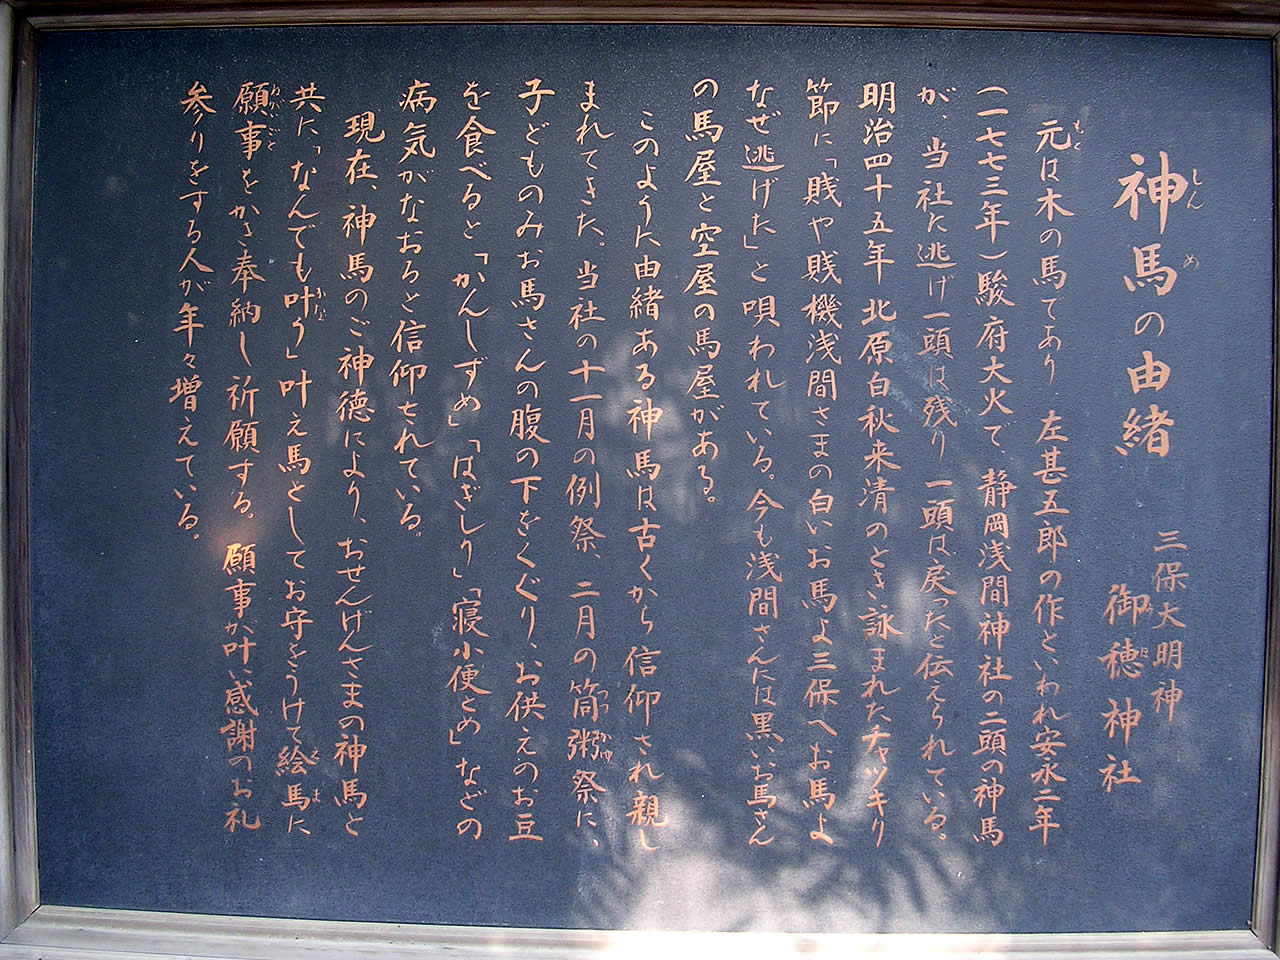 神馬の由緒
三保大明神
御穂神社
元は木の馬であり 左甚五郎の作といわれ安永二年
(一七七三年)駿府大火で、静岡浅間神社の二頭の神馬
が、当社に逃げ一頭は残り 一頭は戻ったと伝えられている。
明治四十五年 北原白秋来清のとき詠まれたチャッキリ
節に「賎や賎機浅間さまの白いお馬よ三保へお馬よ
なぜ逃げた」と唄われている。今も浅間さんには黒いお馬さん
の馬屋と空屋の馬屋がある。
このように由緒ある神馬は古くから信仰され親し
まれてきた。当社の十一月の例祭、二月の筒粥祭に、
子どものみお馬さんの腹の下をくぐり、お供えのお豆
を食べると「かんしずめ」「はぎしり」「寝小便とめ」などの
病気がなおると信仰されている。
現在、神馬のご神徳により、おせんげんさまの神馬と
共に「なんでも叶う」叶え馬としてお守をうけて絵馬に
願事をかき奉納し祈願する。願事が叶い感謝のお礼
参りをする人が年々増えている。